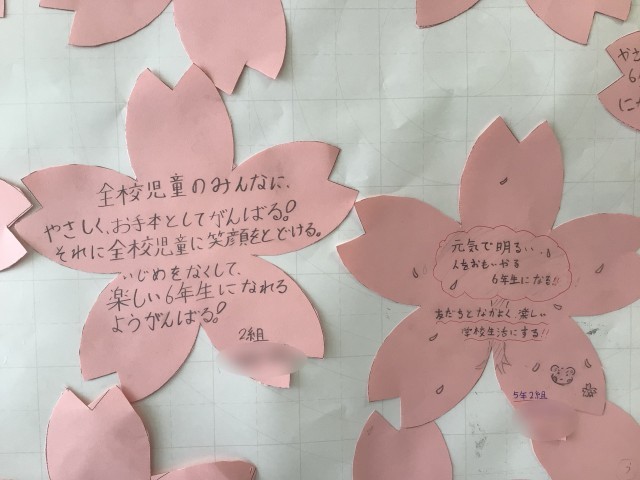 全校児童のみんなに、
やさしく、お手本としてがんばる。
それに全校児童に笑顔をとどける。
いじめをなくして、
楽しい6年生になれる
ようがんばる。
2組
元気で明るい、
人をおもいやる
6年生になる!!
友だちとなかよく楽しい
学校生活にする!!
5年2組
やさ
6
にな